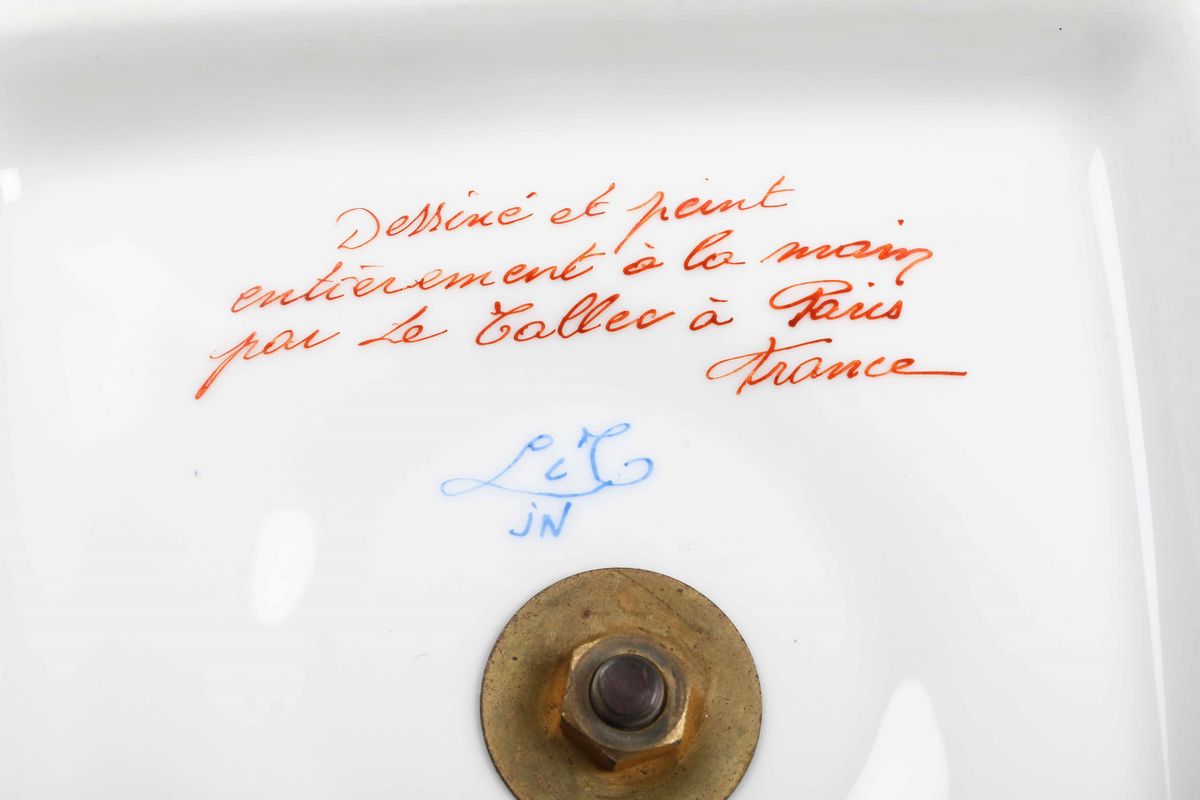 Dessiné et peint
entièrement à la main
par Le Tallec à Paris
France
LcT
JN